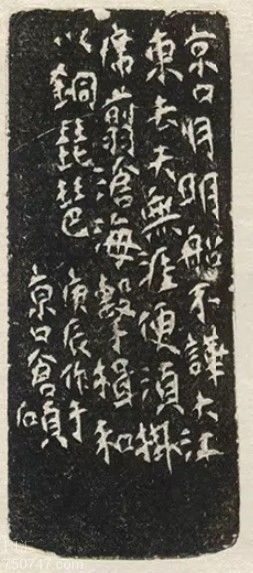 京口月明船不譁大江
東去天無涯便須掛
席翦滄海擊楫和
以銅琵琶
庚辰作于
京口倉碩
750747.com